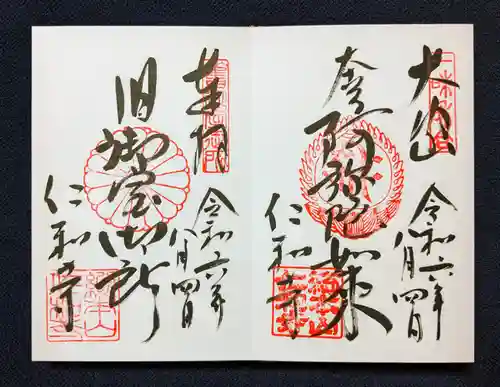 大内山
令和六年
八月四日
阿弥陀如来
仁和寺
奉拝
令和六年
八月四日
旧御室御所
仁和寺